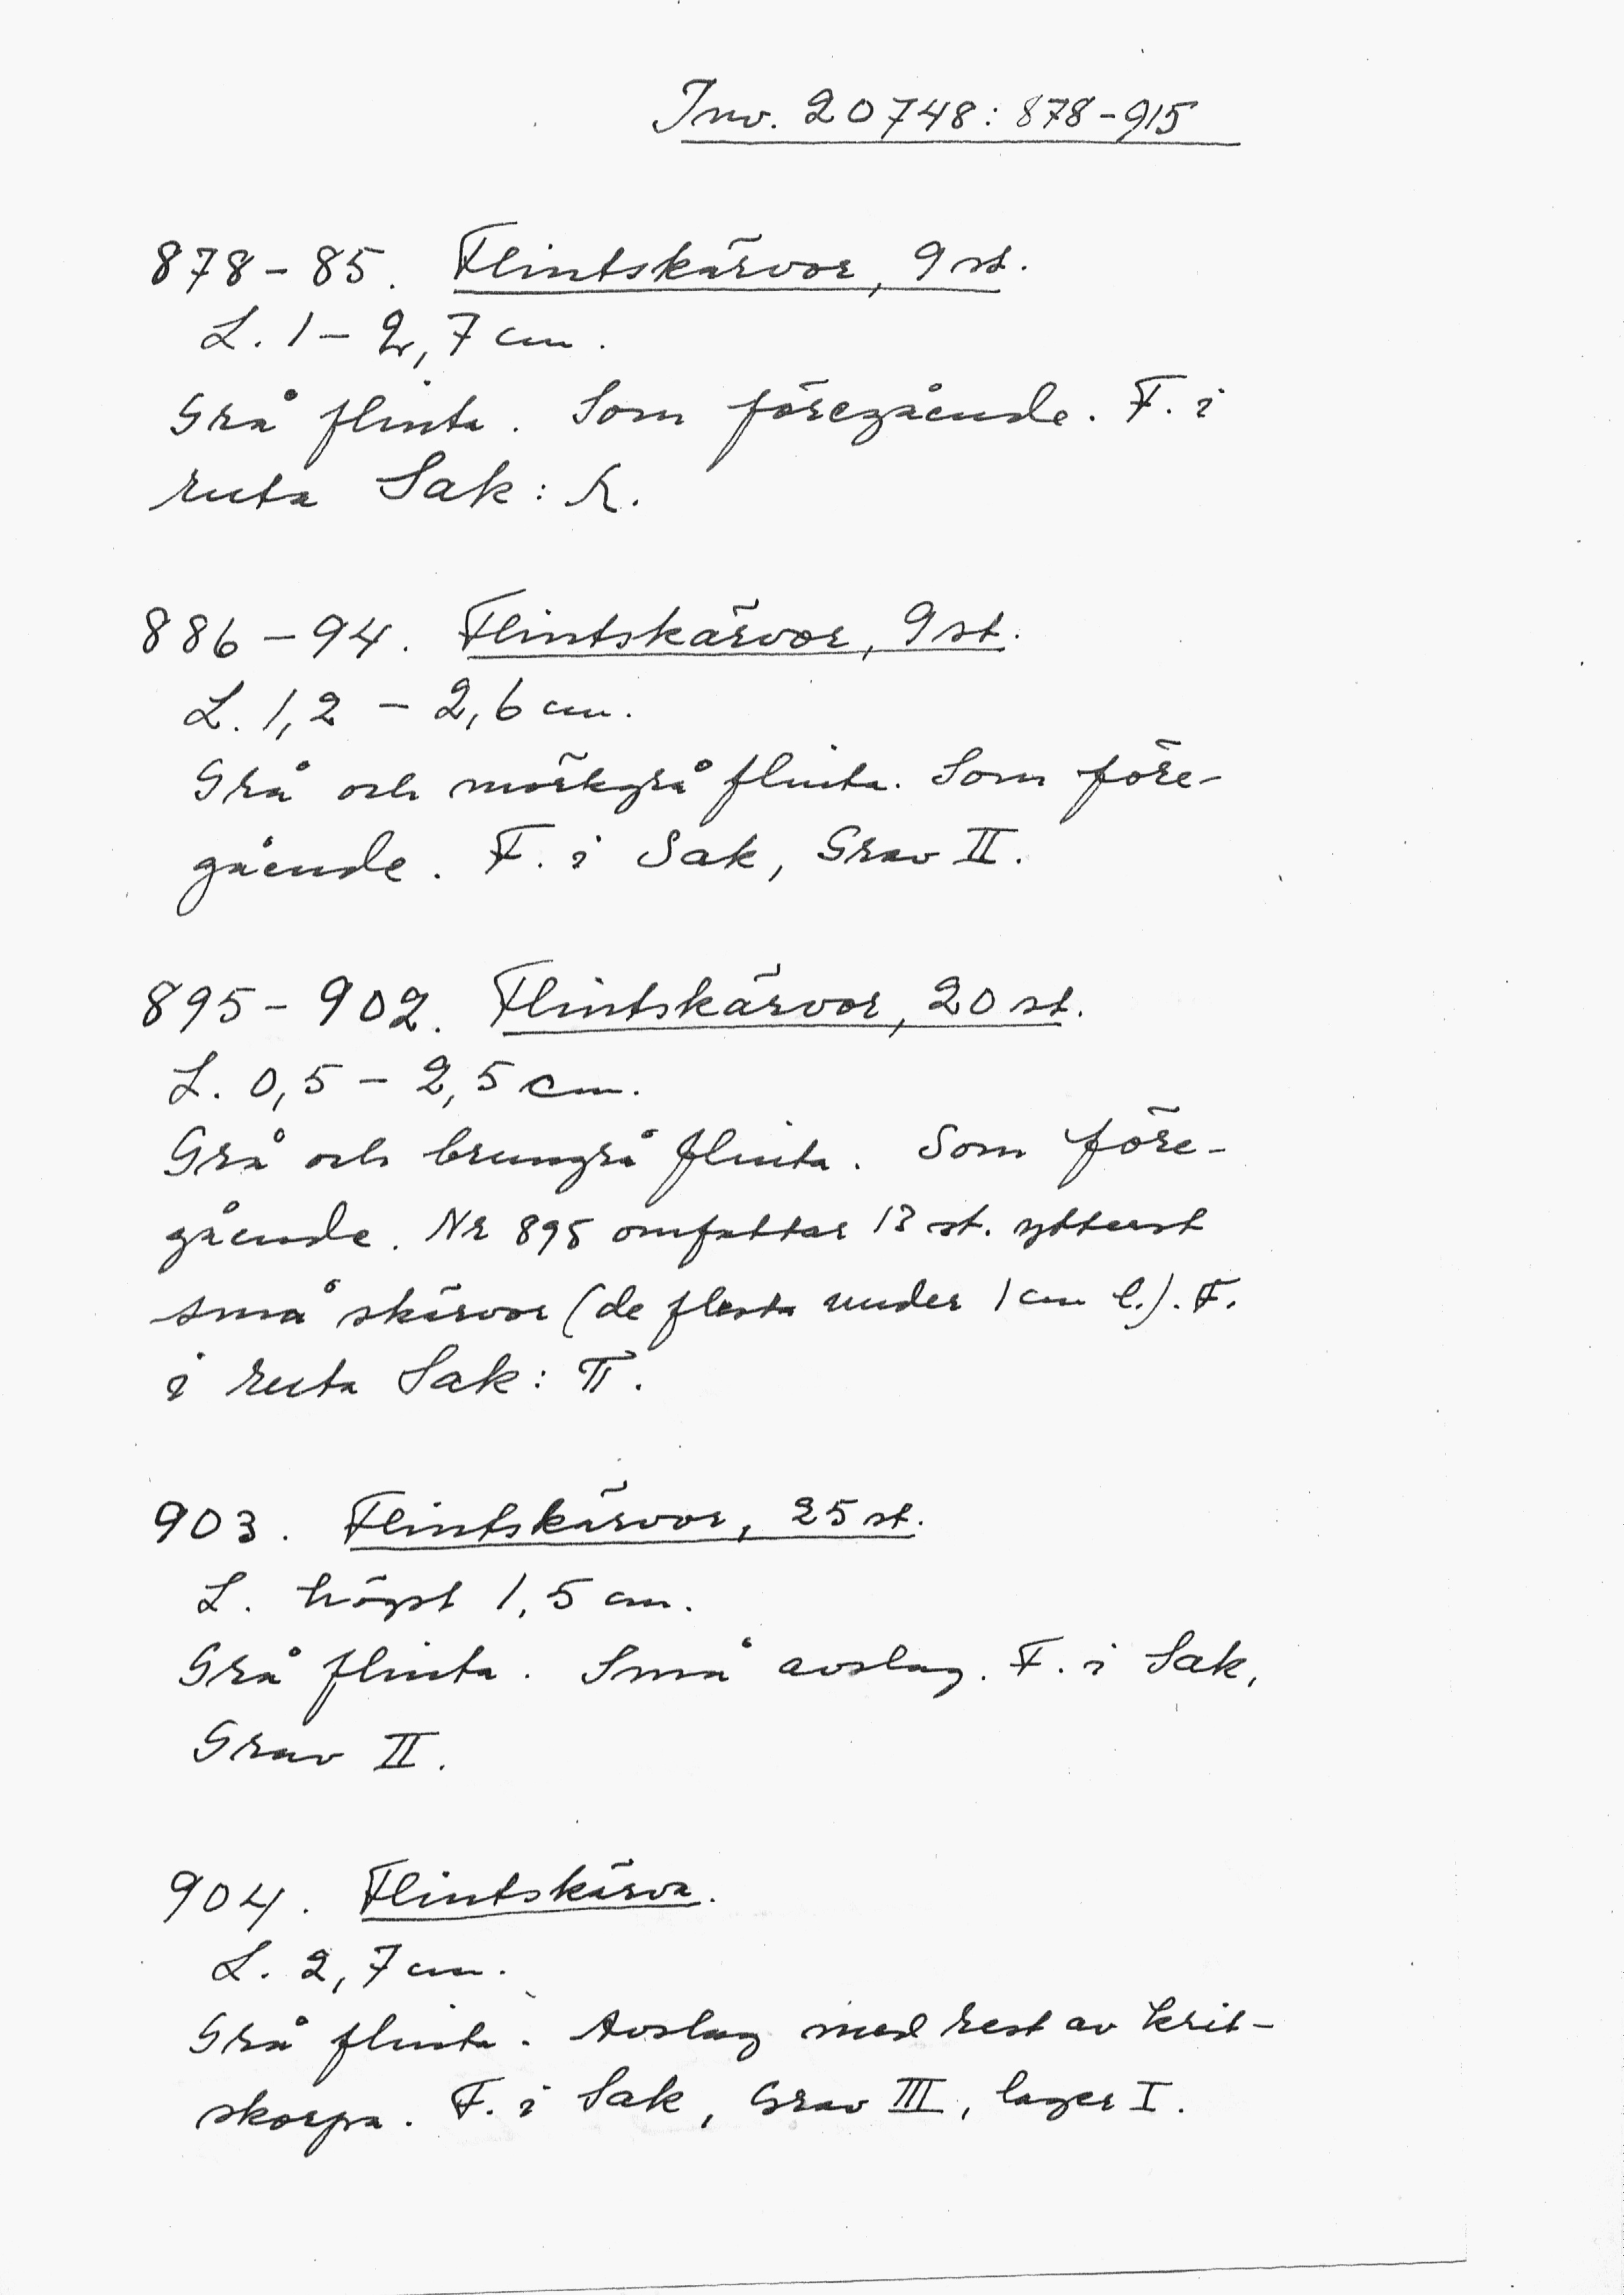 Inv. 20748: 878-915
878-85. Flintskärvor, 9 st.
L. 1-2,7 cm.
Grå flinta. Som föregående. F. i
ruta Sak: R.
886-94. Flintskärvor, 9 st.
L. 1,2 - 2,6 cm.
Grå och mörkgrå flinta. Som före-
gående. F. i Sak, Grav II.
895-902. Flintskärvor, 20 st.
L. 0,5 - 2,5 cm.
Grå och brungrå flinta. Som före-
gående. Nr 895 omfattar 13 st. ytterst
små skärvor (de flesta under 1 cm l.). F.
i ruta Sak: π.
903. Flintskärvor, 25 st.
L. högst 1,5 cm.
Grå flinta. Små avslag. F. i Sak,
Grav II.
904. Flintskärva.
L. 2,7 cm.
Grå flinta. Avslag med rest av krit-
skorpa. F. i Sak, Grav III, lager I.